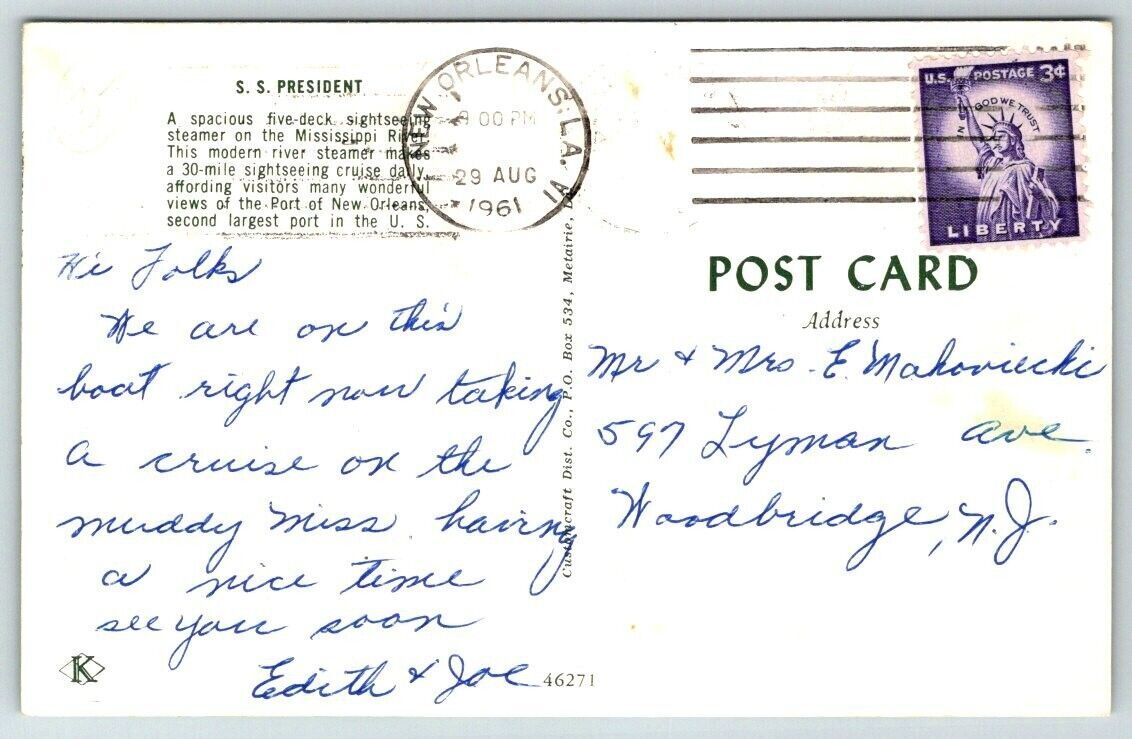 S. S. PRESIDENT
A spacious five-deck sightseeing
steamer on the Mississippi River.
This modern river steamer makes
a 30-mile sightseeing cruise daily,
affording visitors many wonderful
views of the Port of New Orleans,
second largest port in the U. S.
NEW ORLEANS, LA.
3 00 PM
29 AUG
1961
1A
U.S. POSTAGE 3¢
IN GOD WE TRUST
LIBERTY
POST CARD
Address
Hi Folks
We are on this
boat right now taking
a cruise on the
muddy Miss having
a nice time
see you soon
Edith & Joe
Mr & Mrs. E. Makoviecki
597 Lyman Ave.
Woodbridge, N.J.
Customcraft Dist. Co., P.O. Box 534, Metairie, La.
K
46271